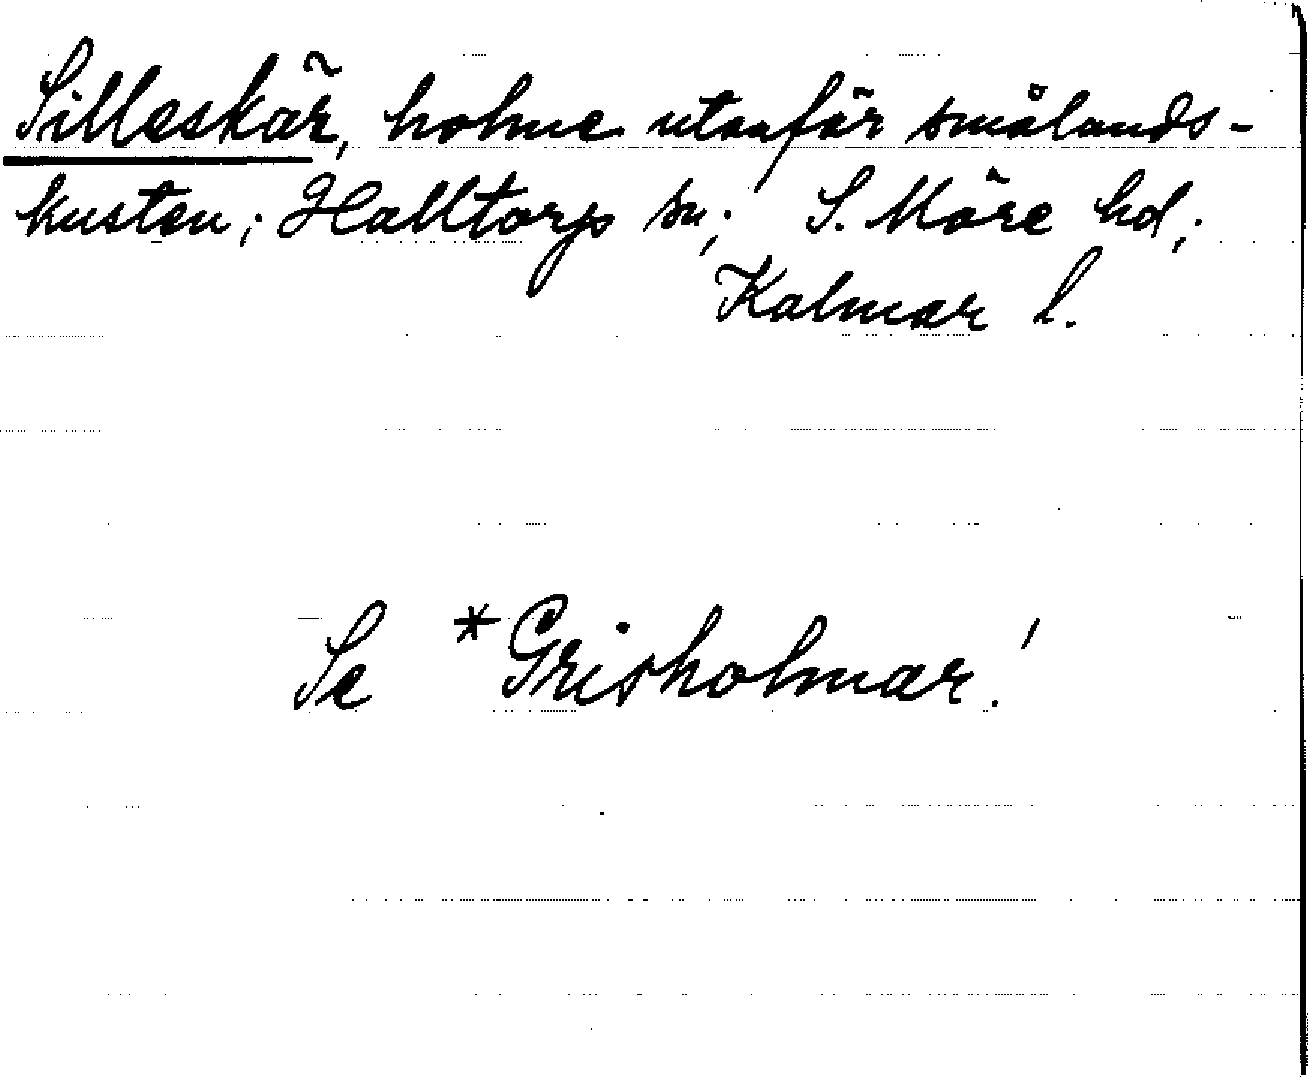 Silleskär, holme utanför smålands-
kusten; Halltorp sn; S. Möre hd;
Kalmar l.
Se *Grisholmar!